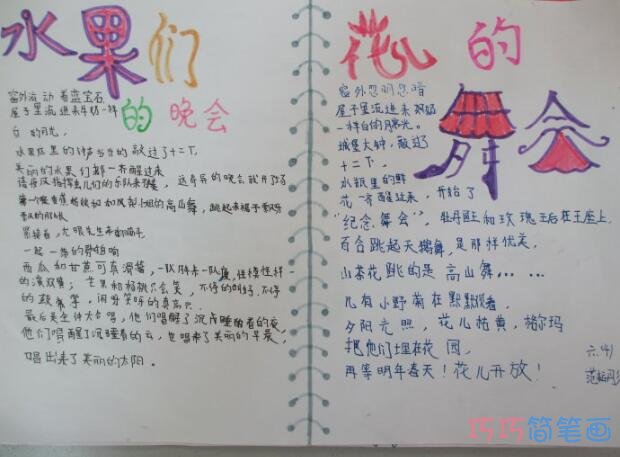 水果们
的晚会
窗外流动着蓝宝石
屋子里流进来牛奶一样
白的月光,
水果店里的钟当当的敲过了十二下,
美丽的水果们都一齐醒过来
请夜风指挥虫儿们的乐队来伴奏, 这奇异的晚会就开了场
第一个是香蕉姑娘和凤梨小姐的高山舞, 跳起来裙子飘呀
飘呀的
紧接着, 龙眼先生来翻筋斗
一起一落的
西瓜和甘蔗可真滑稽, 一队胖来一队瘦, 怪模怪样
的演双簧; 芒果和杨桃只会笑, 不停的 不停
的鼓掌, 闹呀笑呀的真高兴.
最后是全体大合唱, 他们唱醒了沉睡着的夜
他们唱醒了沉睡着的云, 也唱来了美丽的早晨,
唱出来了美丽的太阳.
花儿的
舞会
窗外忽明忽暗
屋子里流进来奶奶
一样白的月光.
城堡大钟, 敲过了
十二下,
水瓶里的鲜
花一齐醒过来, 开始了
“纪念舞会”, 牡丹国王和玫瑰王后在王座上,
百合跳起天鹅舞, 是那样优美,
山茶花跳的是高山舞... ...
儿有小野菊在默默观看,
夕阳无照, 花儿枯黄, 格尔玛
把他们埋在花园,
再等明年春天! 花儿开放!
六(4)
巧巧简笔画